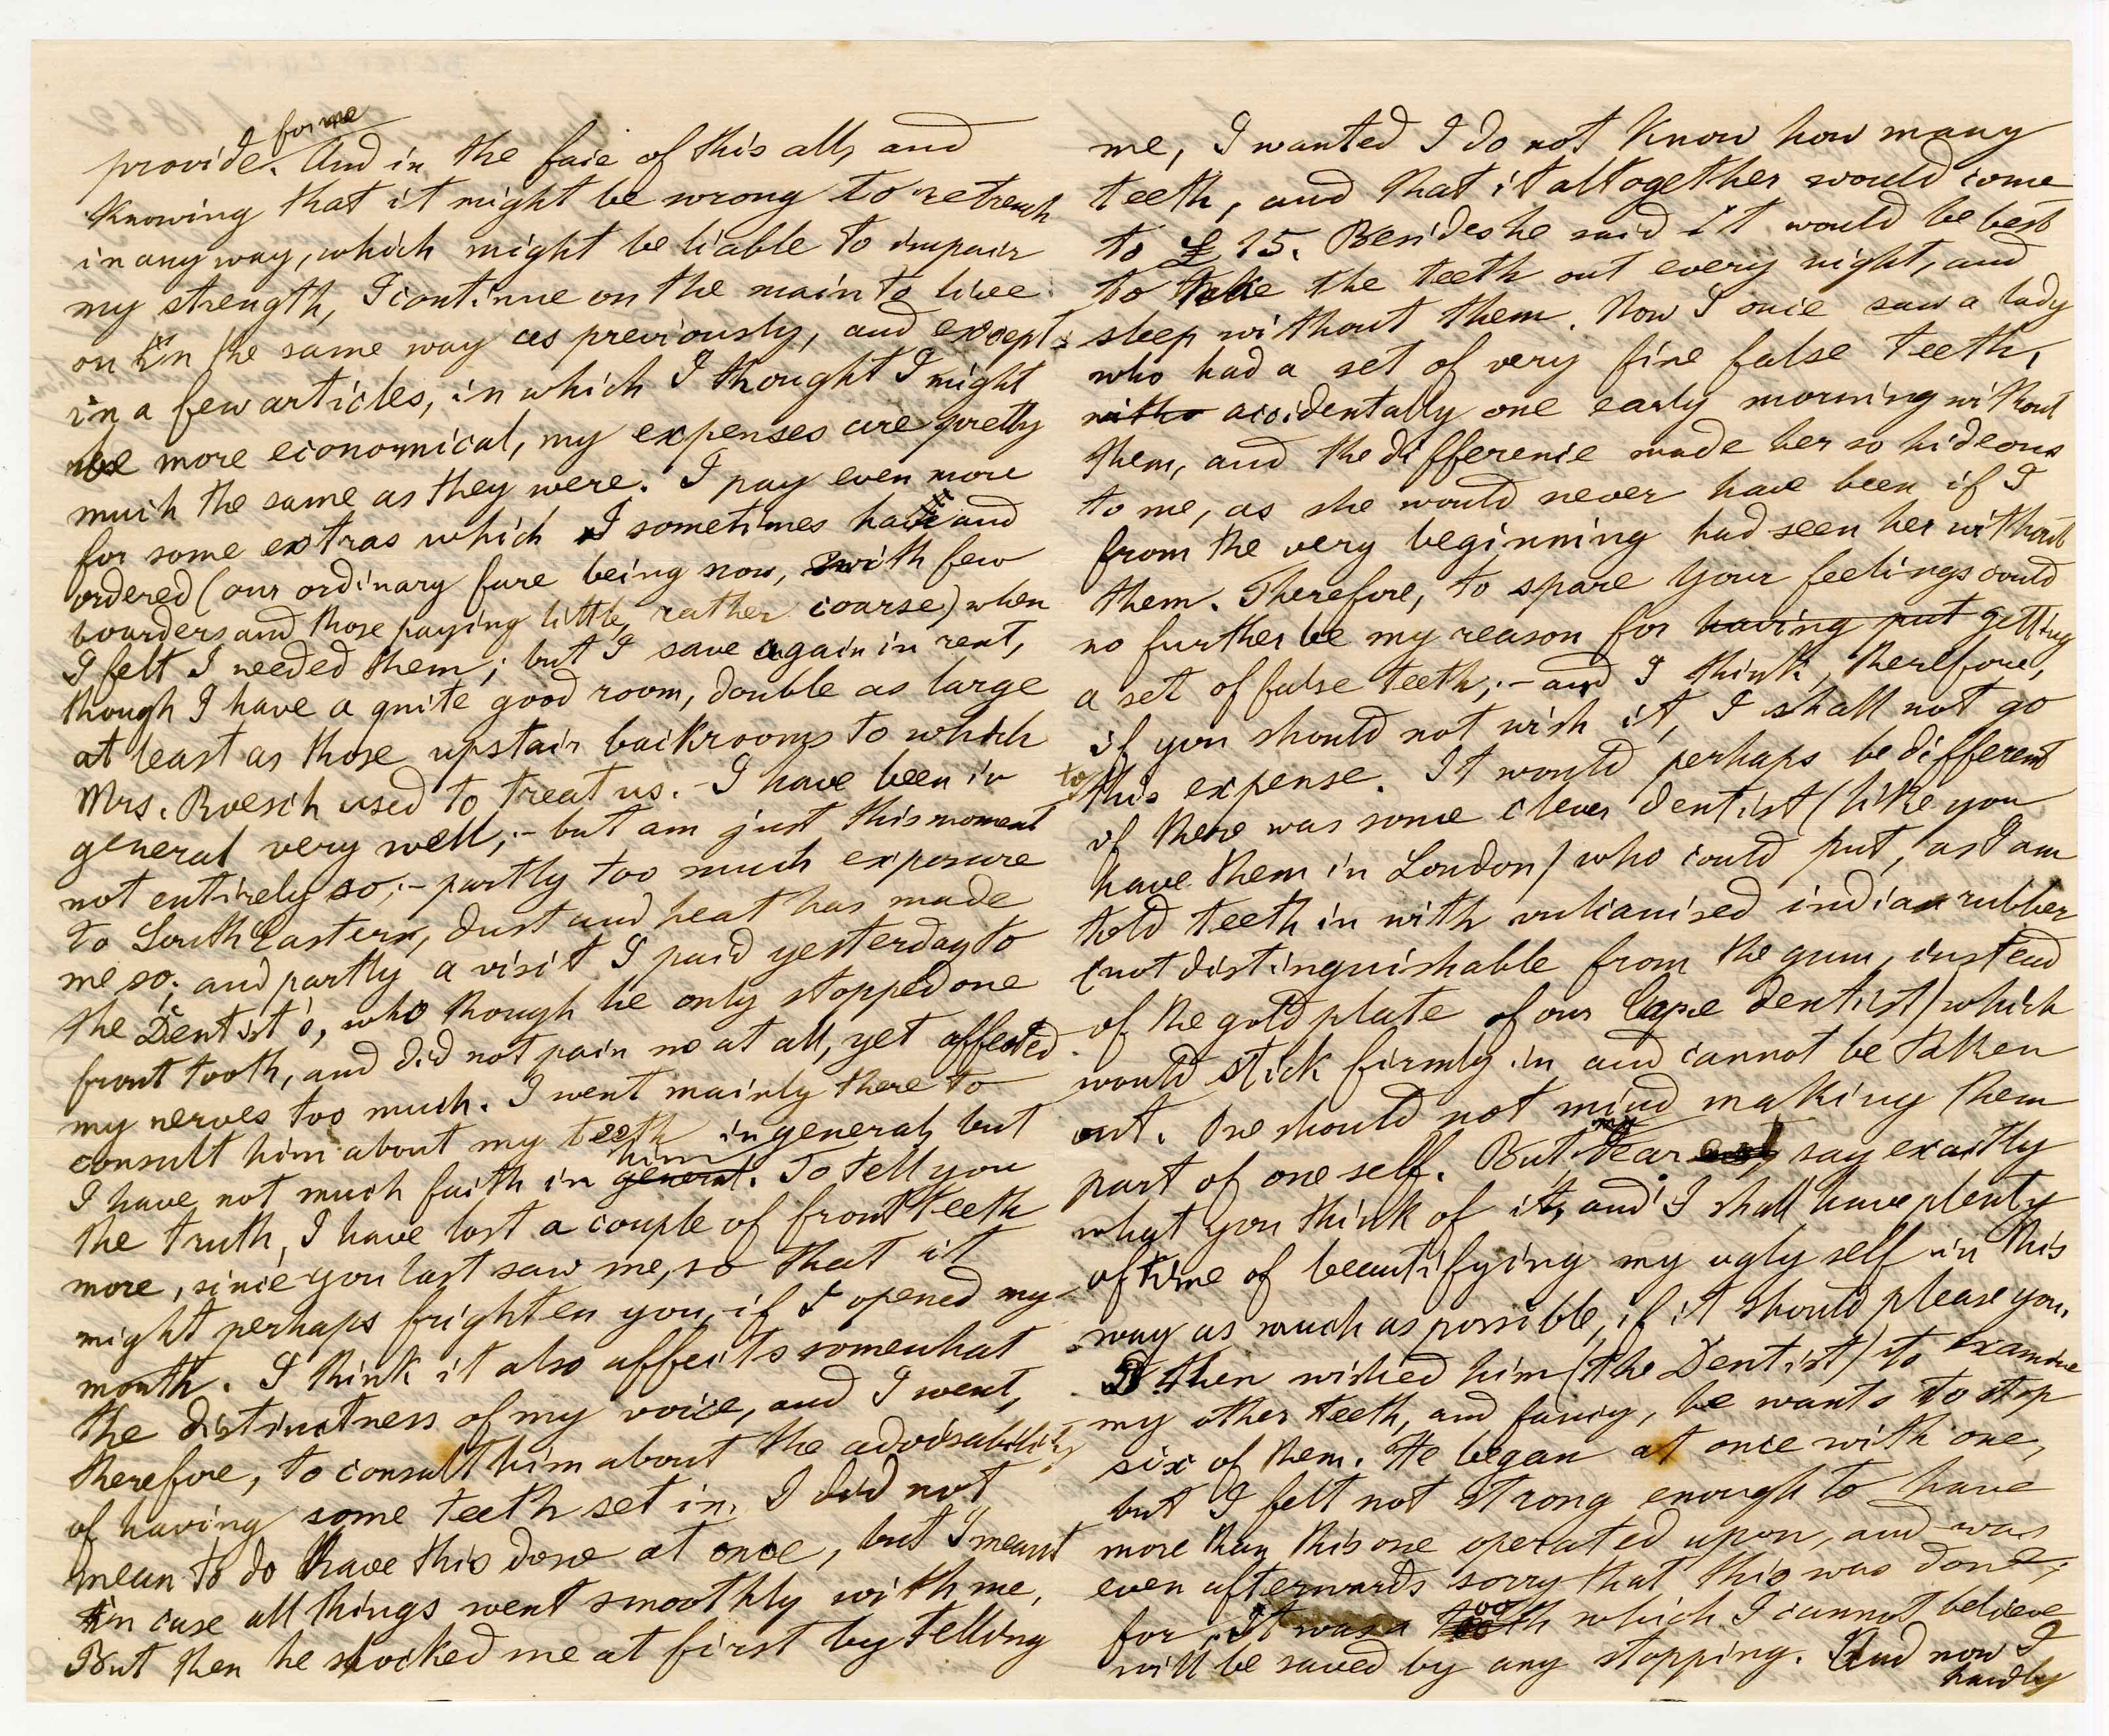 for me
provide. And in the face of this all, and
knowing that it might be wrong to retrench
in any way, which might be liable to impair
my strength, I continue on the main to live
on in the same way as previously, and except
in a few articles, in which I thought I might
be more economical, my expenses are pretty
much the same as they were. I pay even more
for some extras which I sometimes have and
ordered (our ordinary fare being now, with few
boarders and those paying little, rather coarse) when
I felt I needed them; but I save again in rent,
though I have a quite good room, double as large
at least as those upstair backrooms to which
Mrs. Roesch used to treat us. - I have been in
general very well; - but am just this moment
not entirely so; - partly too much exposure
to South Eastern, dust and heat has made
me so; and partly a visit I paid yesterday to
the Dentist's, who though he only stopped one
front tooth, and did not pain me at all, yet affected
my nerves too much. I went mainly there to
consult him about my teeth in general, but
I have not much faith in general. him To tell you
the truth, I have lost a couple of front teeth
more, since you last saw me, so that it
might perhaps frighten you, if I opened my
mouth. I think it also affects somewhat
the distinctness of my voice, and I went,
therefore, to consult him about the advisability
of having some teeth set in. I did not
mean to do have this done at once, but I meant
in case all things went smoothly with me.
But then he shocked me at first by telling
me, I wanted I do not know how many
teeth, and that it altogether would come
to £ 15. Besides he said it would be best
to take the teeth out every night, and
sleep without them. Now I once saw a lady
who had a set of very fine false teeth,
witho accidentally one early morning without
them, and the difference made her so hideous
to me, as she would never have been if I
from the very beginning had seen her without
them. Therefore, to spare your feelings could
no further be my reason for having put getting
a set of false teeth; - and I think, therefore,
if you should not wish it, I shall not go
to this expense. It would perhaps be different
if there was some clever dentist (like you
have them in London) who could put, as I am
told teeth in with vulcanised indian rubber
(not distinguishable from the gum, instead
of the gold plate of our Cape dentist) which
would stick firmly in and cannot be taken
out. One should not mind making them
part of one self. But my dear say exactly
what you think of it, and I shall have plenty
of time of beautifying my ugly self in this
way as much as possible, if it should please you.
I then wished him (the Dentist) to examine
my other teeth, and fancy, he wants to stop
six of them. He began at once with one,
but I felt not strong enough to have
more than this one operated upon, and was
even afterwards sorry that this was done;
for it was a tooth which I cannot believe
will be saved by any stopping. And now I
hardly